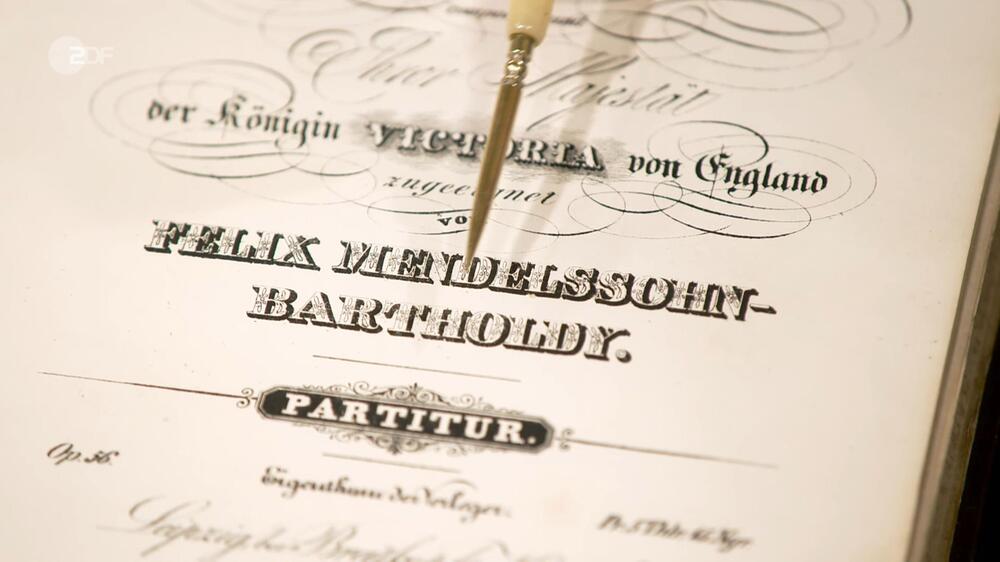 ZDF
Ihrer Majestät
der Königin VICTORIA von England
zugeeignet
von
FELIX MENDELSSOHN-
BARTHOLDY.
PARTITUR.
Op. 56.
Eigenthum der Verleger.
Leipzig, bei